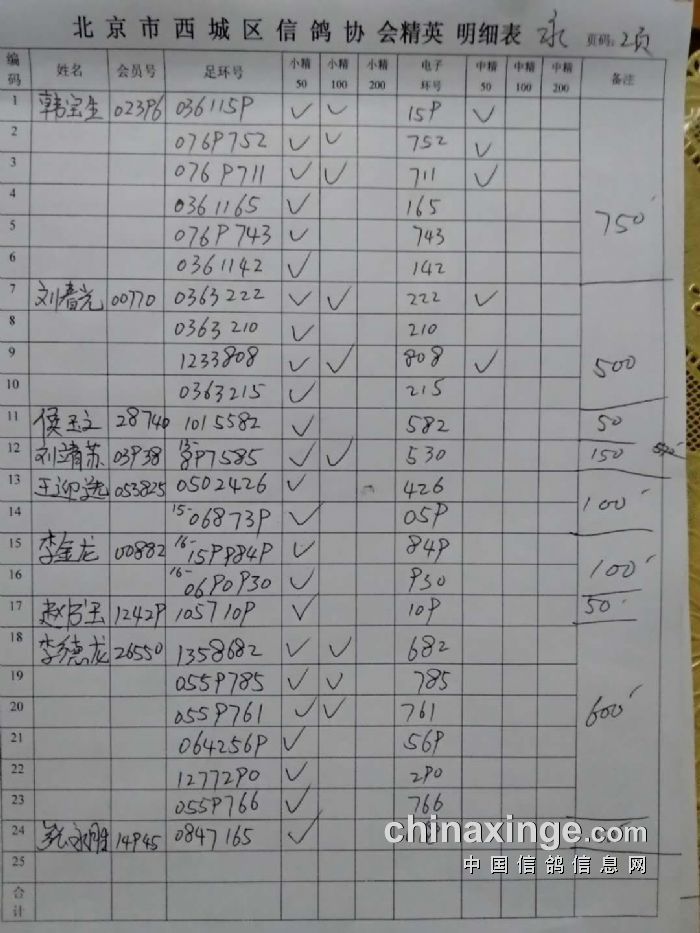 北京市西城区信鸽协会精英 明细表 永 页码：2页
编码 姓名 会员号 足环号 小精50 小精100 小精200 电子环号 中精50 中精100 中精200 备注
1 韩宝生 02396 0361159 ✓ ✓ 159 ✓
2 0769752 ✓ ✓ 752 ✓
3 0769711 ✓ ✓ 711 ✓
4 0361165 ✓ 165 750
5 0769743 ✓ 743
6 0361142 ✓ 142
7 刘春光 00770 0363222 ✓ ✓ 222 ✓
8 0363210 ✓ 210
9 1233808 ✓ ✓ 808 ✓ 500
10 0363215 ✓ 215
11 侯玉文 28740 1015582 ✓ 582 50
12 刘靖苏 03938 897585 ✓ ✓ 530 150
13 王迎选 053825 0502426 ✓ 426 100
14 15-068739 ✓ 059
15 李金龙 00882 16-1599849 ✓ 849 100
16 16-0690930 ✓ 930
17 赵 玉 12429 1057109 ✓ 109 50
18 李德龙 26550 1358682 ✓ ✓ 682
19 0559785 ✓ ✓ 785
20 0559761 ✓ ✓ 761 600
21 0642569 ✓ 569
22 1277290 ✓ 290
23 0559766 ✓ 766
24 永胜 14945 0847165 ✓
chinaxinge.com
25 中国信鸽信息网
合计